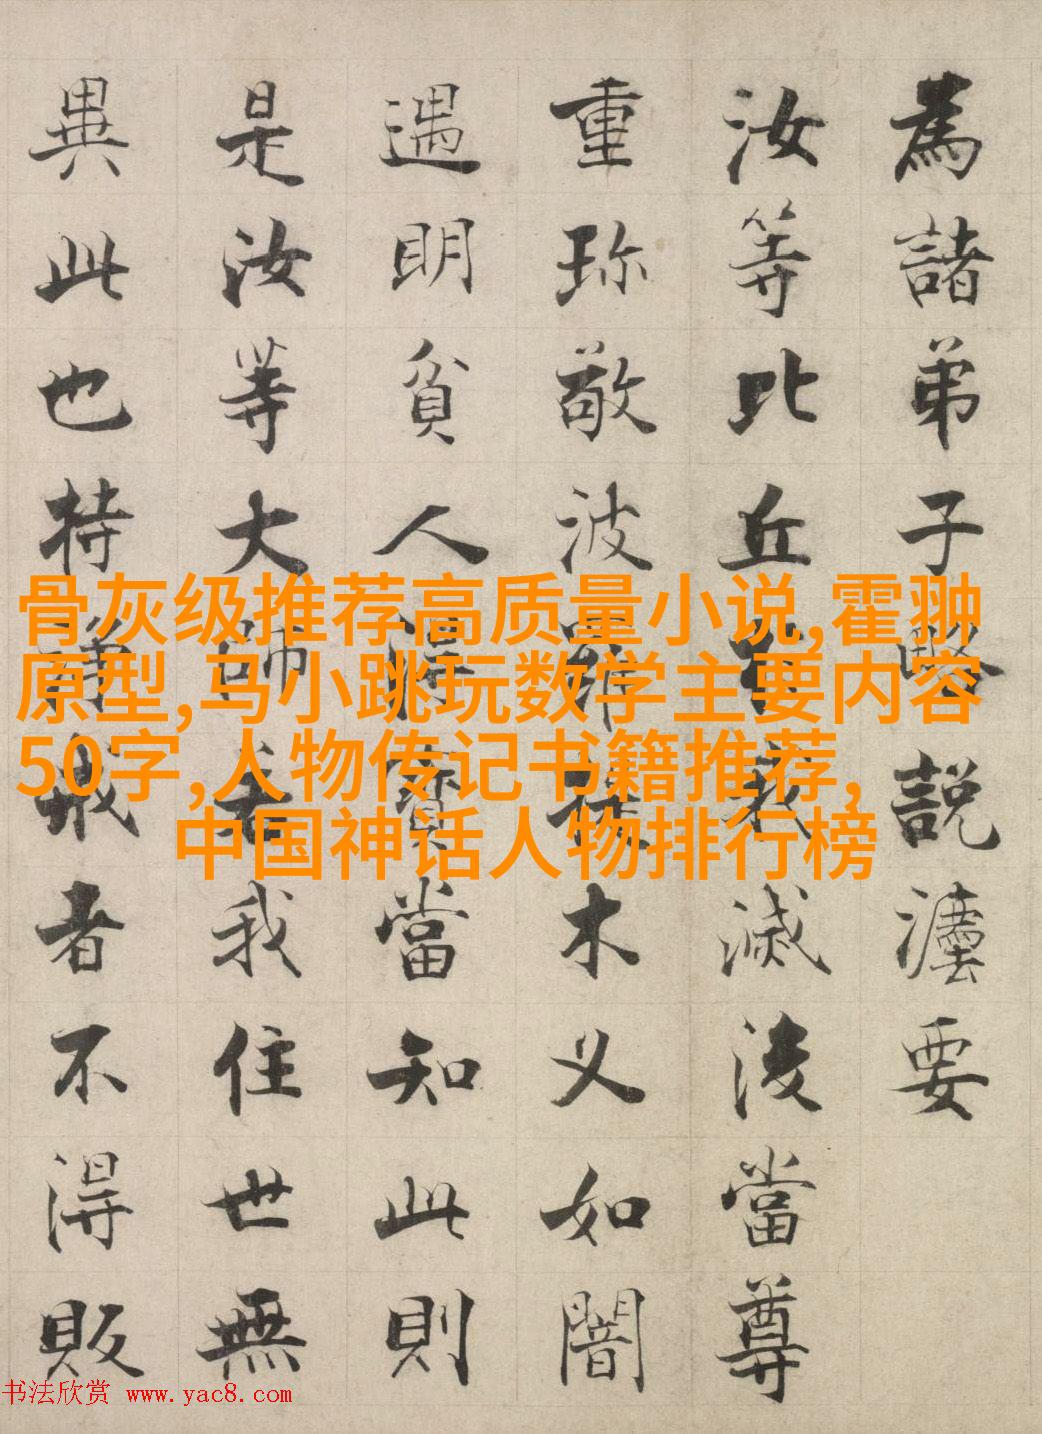 為諸弟子略說灋要
汝等比丘於我滅後當尊
重珎敬波羅提木叉如闇
遇明貧人得寶當知此則
是汝等大師若我住世無
異此也持淨戒者不得販
骨灰级推荐高质量小说,霍翀
原型,马小跳玩数学主要内容
50字,人物传记书籍推荐,
中国神话人物排行榜
书法欣赏 www.yac8.com